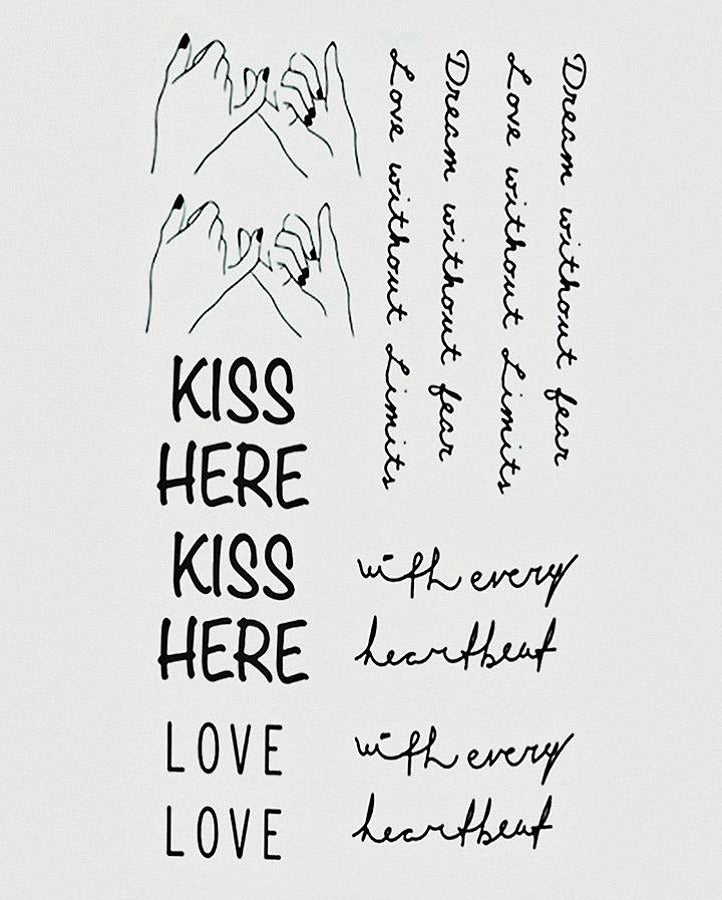 KISS
HERE
KISS
HERE
LOVE
LOVE
Dream without fear
Love without Limits
Dream without fear
Love without Limits
with every
heartbeat
with every
heartbeat